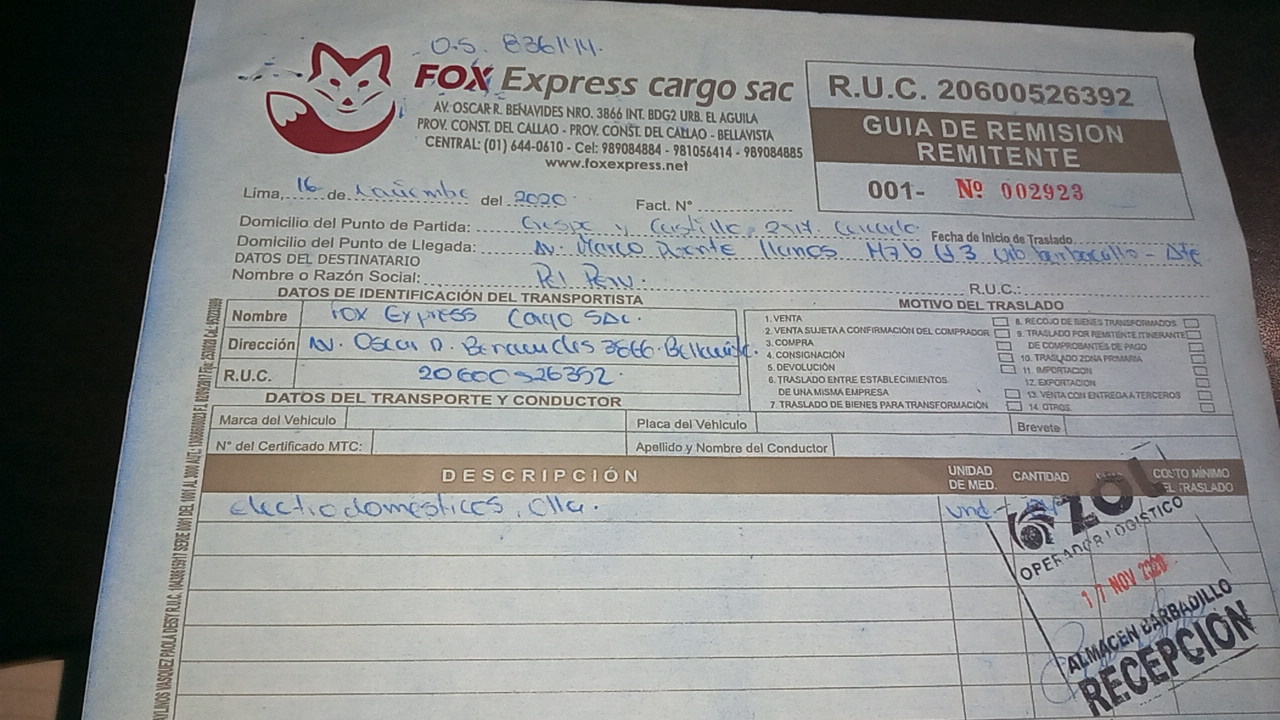 O.S. 836144.
FOX Express cargo sac
AV. OSCAR R. BENAVIDES NRO. 3866 INT. BDG2 URB. EL AGUILA
PROV. CONST. DEL CALLAO - PROV. CONST. DEL CALLAO - BELLAVISTA
CENTRAL: (01) 644-0610 - Cel: 989084884 - 981056414 - 989084885
www.foxexpress.net
R.U.C. 20600526392
GUIA DE REMISION
REMITENTE
001- Nº 002923
Lima, 16 de Noviembre del 2020. Fact. N°
Domicilio del Punto de Partida: Crespo y Castillo Cercado Fecha de Inicio de Traslado
Domicilio del Punto de Llegada: Av. Marco Puente Llanos Urb barbadillo - Ate
DATOS DEL DESTINATARIO
Nombre o Razón Social: Perú. R.U.C.:
DATOS DE IDENTIFICACIÓN DEL TRANSPORTISTA
Nombre Fox Express Cargo SAC.
Dirección Av. Oscar R. Benavides 3866. Bellavista.
R.U.C. 20600526392.
MOTIVO DEL TRASLADO
1. VENTA
2. VENTA SUJETA A CONFIRMACIÓN DEL COMPRADOR
3. COMPRA
4. CONSIGNACIÓN
5. DEVOLUCIÓN
6. TRASLADO ENTRE ESTABLECIMIENTOS
DE UNA MISMA EMPRESA
7. TRASLADO DE BIENES PARA TRANSFORMACIÓN
8. RECOJO DE BIENES TRANSFORMADOS
9. TRASLADO POR REMITENTE ITINERANTE
DE COMPROBANTES DE PAGO
10. TRASLADO ZONA PRIMARIA
11. IMPORTACION
12. EXPORTACION
13. VENTA CON ENTREGA A TERCEROS
14. OTROS
DATOS DEL TRANSPORTE Y CONDUCTOR
Marca del Vehiculo Placa del Vehículo Brevete
N° del Certificado MTC: Apellido y Nombre del Conductor
DESCRIPCIÓN UNIDAD DE MED. CANTIDAD COSTO MÍNIMO DEL TRASLADO
electrodomésticos, olla. und -
ZOL
OPERADOR LOGISTICO
17 NOV 2020
ALMACEN BARBADILLO
RECEPCION